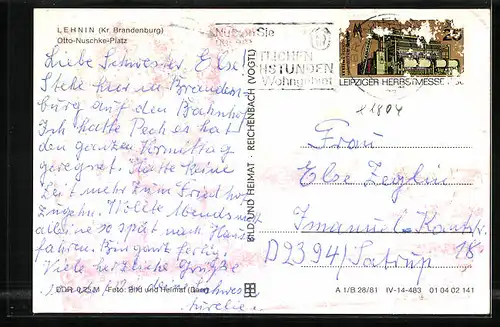 LEHNIN (Kr. Brandenburg)
Otto-Nuschke-Platz
Liebe Schwester Else!
Stehe hier in Branden
burg auf den Bahnhof
Ich hatte Pech es hat
den ganzen Vormittag
geregnet. Hatte keine
Zeit mehr zum Friedhof
zugehn. Wollte Abends nicht
alleine so spät nach Hause
fahren. Bin ganz fertig.
Viele herzliche Grüße
Deine Schwes
Aurelie
DDR 0,25 M Foto: Bild und Heimat
BILD UND HEIMAT REICHENBACH (VOGTL)
Nutzen Sie
TLICHEN
HSTUNDEN
Wohngebiet
LEIPZIGER HERBSTMESSE
Frau
Else Zeglin
Imanuel-Kantstr
18
D2394/Satrup
A 1/B 28/81 IV-14-483 01 04 02 141